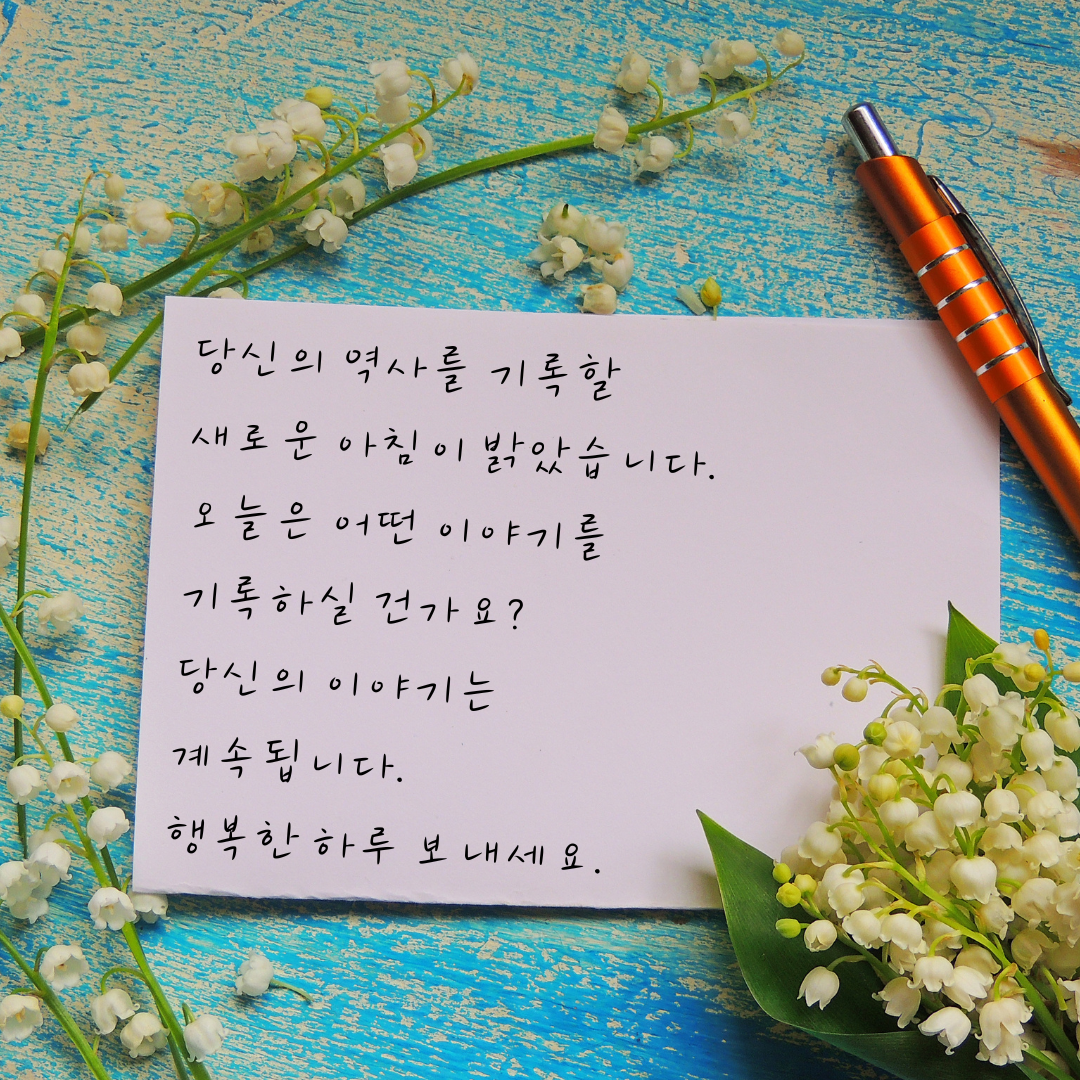 당신의 역사를 기록할
새로운 아침이 밝았습니다.
오늘은 어떤 이야기를
기록하실 건가요?
당신의 이야기는
계속됩니다.
행복한 하루 보내세요.